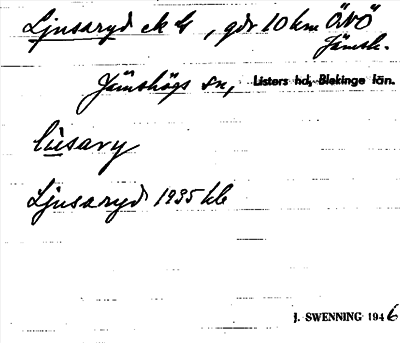 Ljusaryd ek 4, gdr 10 km ÖNÖ
Jämsh.
Jämshögs sn, Listers hd, Blekinge län.
lusary
Ljusaryd 1935 kb
J. SWENNING 1946